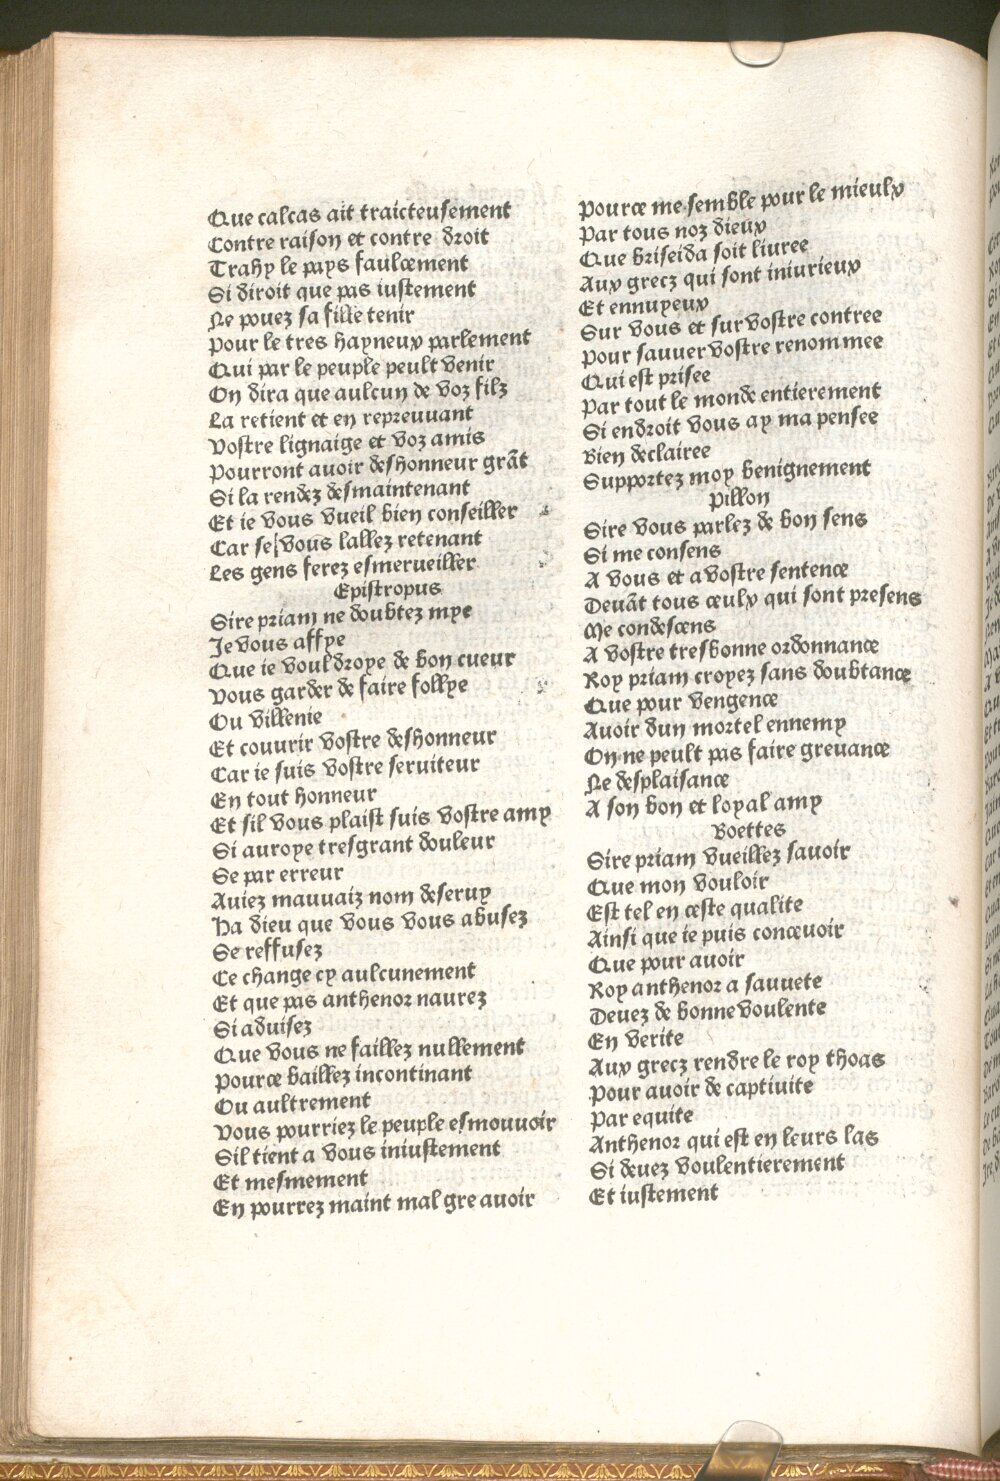 Que calcas ait traicteusement
Contre raison et contre droit
Trahy le pays faulcement
Si diroit que pas iustement
Ne pouez sa fille tenir
Pour le tres hayneux parlement
Qui par le peuple peult venir
On dira que aulcun de voz filz
La retient et en repreuuant
Vostre lignaige et voz amis
Pourront auoir deshonneur grãt
Si la rendez desmaintenant
Et ie vous vueil bien conseiller
Car se vous lallez retenant
Les gens ferez esmerueiller
Epistropus
Sire priam ne doubtez mye
Je vous affye
Que ie vouldroye de bon cueur
Vous garder de faire follye
Ou villenie
Et couurir vostre deshonneur
Car ie suis vostre seruiteur
En tout honneur
Et sil vous plaist suis vostre amy
Si auroye tresgrant douleur
Se par erreur
Auiez mauuaiz nom deseruy
Ha dieu que vous vous abusez
Se reffusez
Ce change cy aulcunement
Et que pas anthenor naurez
Si aduisez
Que vous ne faillez nullement
Pource baillez incontinant
Ou aultrement
Vous pourriez le peuple esmouuoir
Sil tient a vous iniustement
Et mesmement
En pourrez maint mal gre auoir
Pource me semble pour le mieulx
Par tous noz dieux
Que briseida soit liuree
Aux grecz qui sont iniurieux
Et ennuyeux
Sur vous et sur vostre contree
Pour sauuer vostre renommee
Qui est prisee
Par tout le monde entierement
Si endroit vous ay ma pensee
Bien declairee
Supportez moy benignement
Pillon
Sire vous parlez de bon sens
Si me consens
A vous et a vostre sentence
Deuãt tous ceulx qui sont presens
Me condescens
A vostre tresbonne ordonnance
Roy priam croyez sans doubtance
Que pour vengence
Auoir dun mortel ennemy
On ne peult pas faire greuance
Ne desplaisance
A son bon et loyal amy
Boettes
Sire priam vueillez sauoir
Que mon vouloir
Est tel en ceste qualite
Ainsi que ie puis conceuoir
Que pour auoir
Roy anthenor a sauuete
Deuez de bonne voulente
En verite
Aux grecz rendre le roy thoas
Pour auoir de captiuite
Par equite
Anthenor qui est en leurs las
Si deuez voulentierement
Et iustement